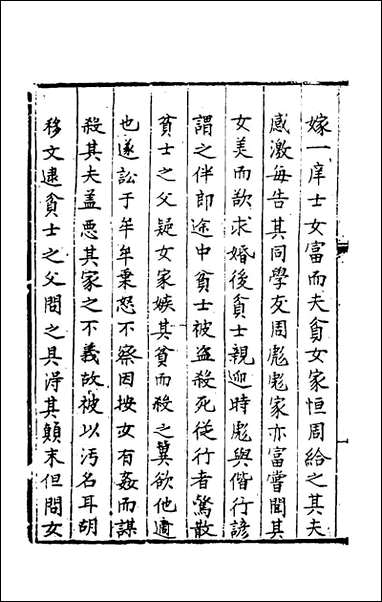 嫁一庠士女富而夫貧女家恒周給之其夫
感激每告其同學友周彪彪家亦富嘗聞其
女美而欲求婚後貧士親迎時彪與偕行諺
謂之伴郎途中貧士被盗殺死從行者驚散
貧士之父疑女家嫉其貧而殺之冀欲他適
也遂訟于牟牟乗怒不察因按女有姦而謀
殺其夫盖惡其家之不義故被以汚名耳胡
移文逮貧士之父問之具淂其顛末但問女